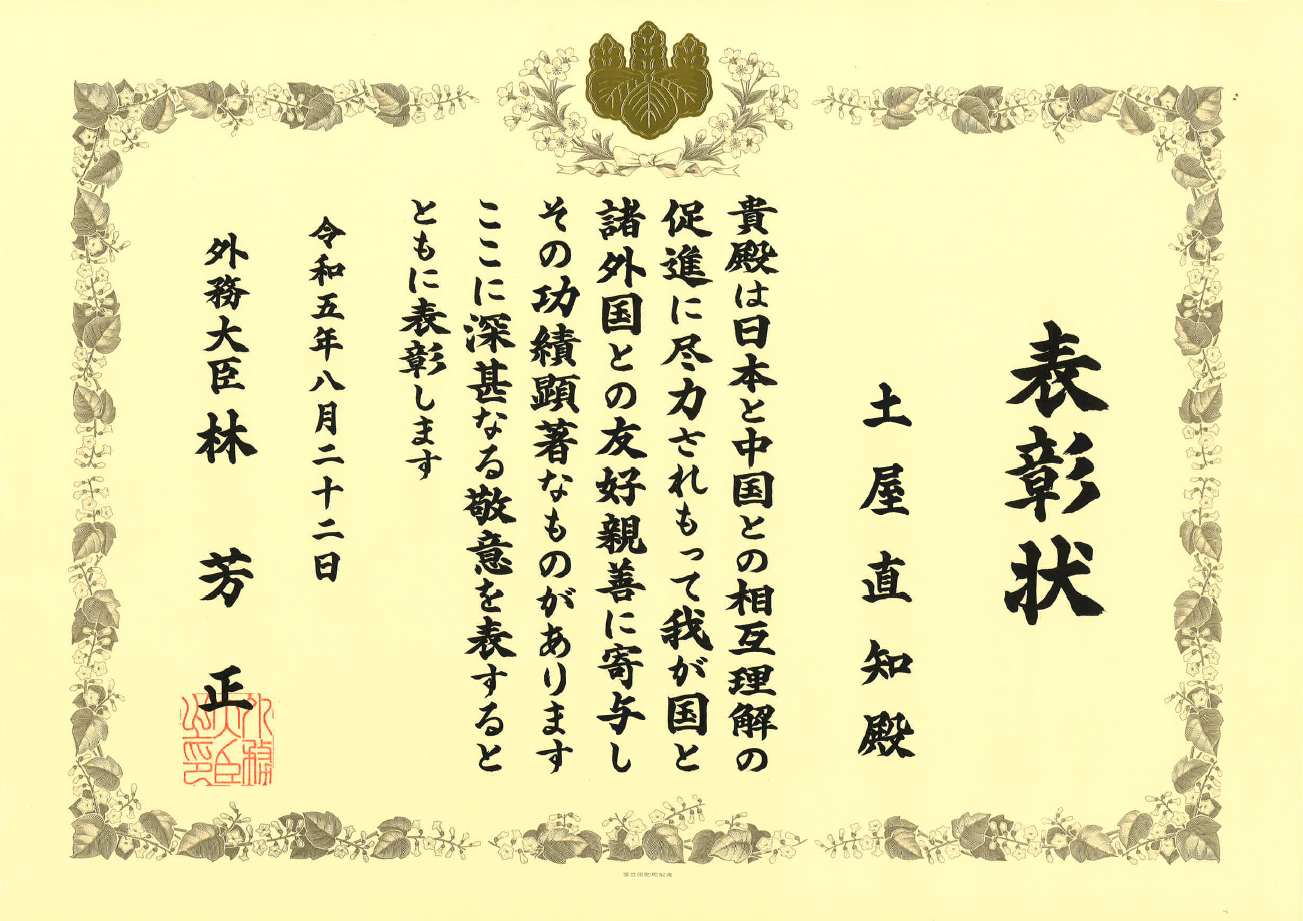 表彰状
土屋直知殿
貴殿は日本と中国との相互理解の
促進に尽力されもって我が国と
諸外国との友好親善に寄与し
その功績顕著なものがあります
ここに深甚なる敬意を表すると
ともに表彰します
令和五年八月二十二日
外務大臣 林 芳 正
外務大臣公印
国立印刷局製造